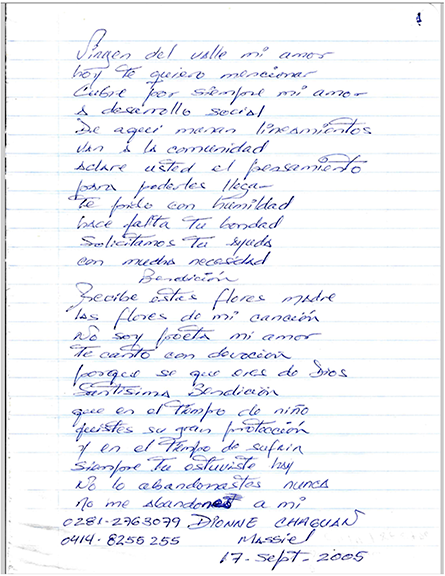 1
Virgen del valle mi amor
hoy te quiero mencionar
Cubre por siempre mi amor
a desarrollo social
De aqui manan lineamientos
van a la comunidad
aclare usted el pensamiento
para poderles llegar
te pido con humildad
hace falta tu bondad
Solicitamos tu ayuda
con mucha necesidad
Bendición
Recibe estas flores madre
las flores de mi canción
No soy poeta mi amor
te canto con devoción
porque se que eres de Dios
Santisima Bendición
que en el tiempo de niño
fuistes su gran protección
y en el tiempo de sufrir
siempre tu estuviste
No lo abandonastas nunca
no me abandones a mi
0281-2763079 DIONNE CHAGUAN
0414-8255255 Massiel
17-Sept-2005